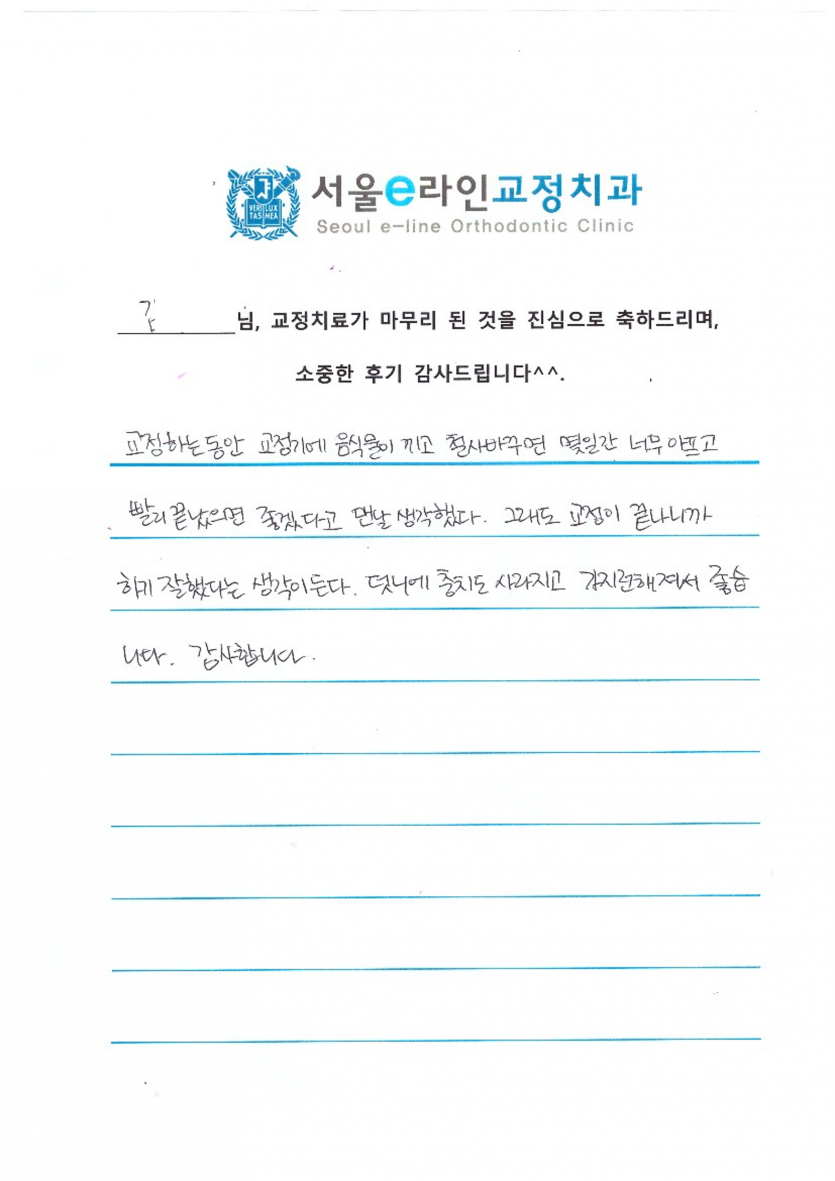 서울e라인교정치과
VERI LUX
TAS MEA
Seoul e-line Orthodontic Clinic
님, 교정치료가 마무리 된 것을 진심으로 축하드리며,
소중한 후기 감사드립니다^^.
교정하는동안 교정기에 음식물이 끼고 철사바꾸면 몇일간 너무아프고
빨리끝났으면 좋겠다고 맨날생각했다. 그래도 교정이 끝나니까
하기 잘했다는 생각이든다. 덧니에 충치도 사라지고 가지런해져서 좋습
니다. 감사합니다.